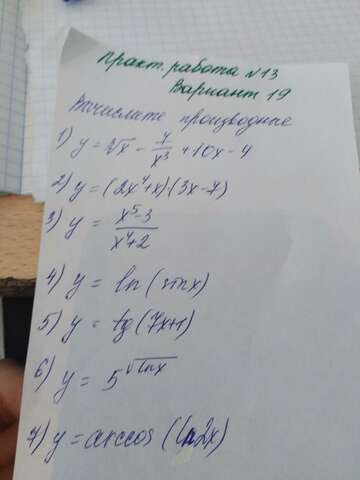 Практ. работа №13
Вариант 19
Вычислите производные
1) y = √x - 7/x³ + 10x - 4
2) y = (2x⁴+x)·(3x-7)
3) y = (x⁵-3)/(x⁴+2)
4) y = ln (sinx)
5) y = tg (7x+1)
6) y = 5^√lnx
7) y = arccos (ln2x)